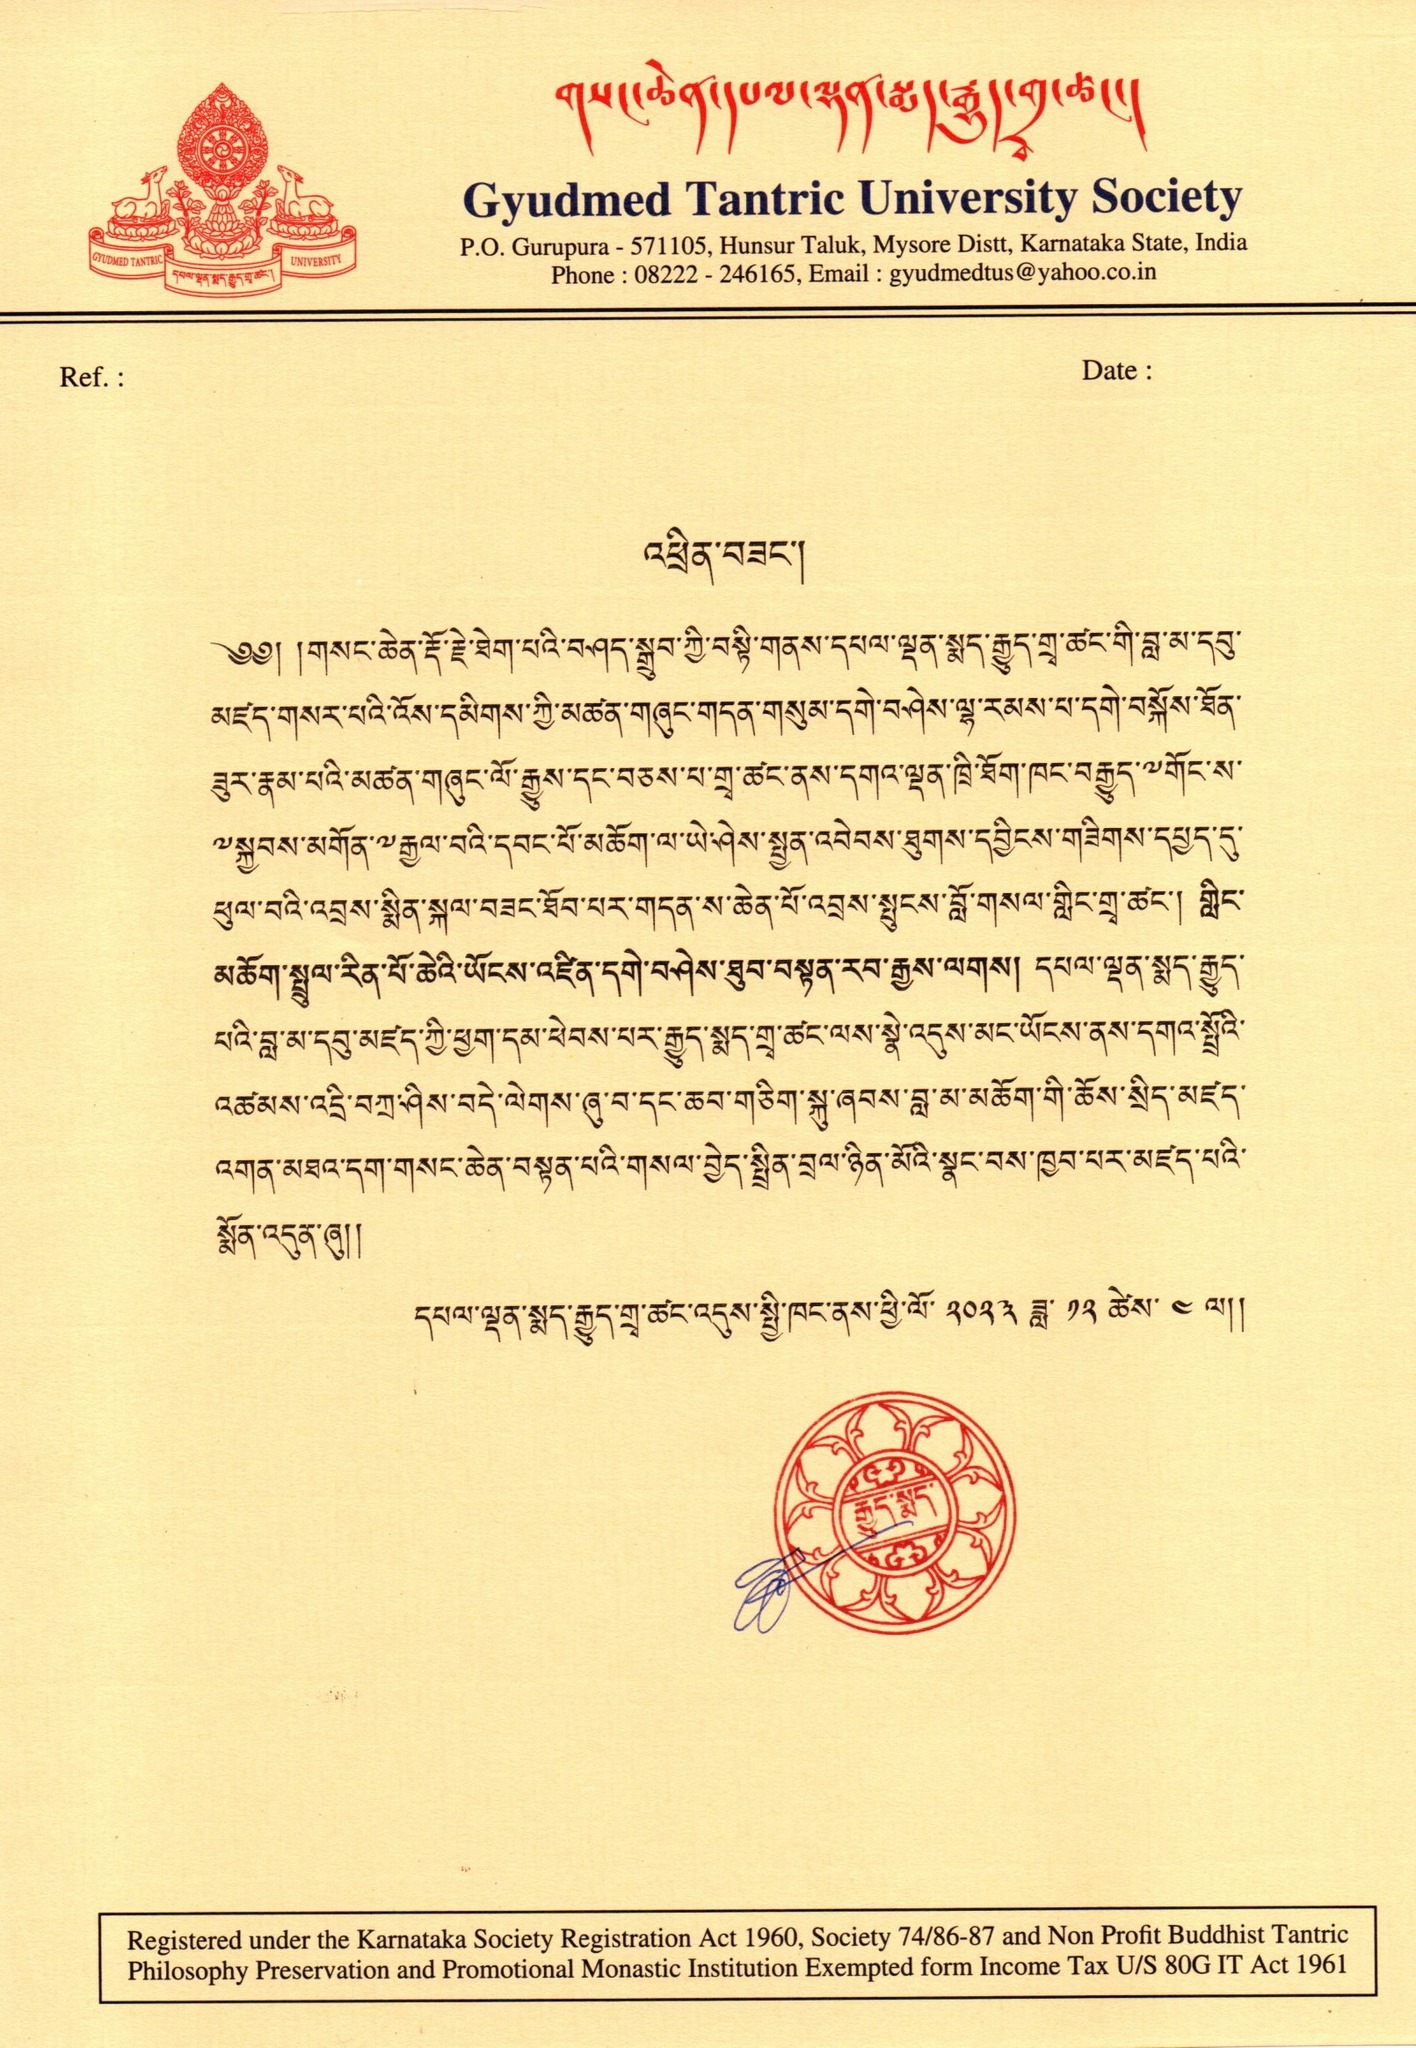 གསང་ཆེན་དཔལ་ལྡན་སྨད་རྒྱུད་གྲྭ་ཚང་།
Gyudmed Tantric University Society
P.O. Gurupura - 571105, Hunsur Taluk, Mysore Distt, Karnataka State, India
Phone : 08222 - 246165, Email : gyudmedtus@yahoo.co.in
GYUDMED TANTRIC UNIVERSITY
དཔལ་ལྡན་སྨད་རྒྱུད་གྲྭ་ཚང་།
Ref. :
Date :
འཕྲིན་བཟང་།
༄༅། །གསང་ཆེན་རྡོ་རྗེ་ཐེག་པའི་བཤད་སྒྲུབ་ཀྱི་བསྟི་གནས་དཔལ་ལྡན་སྨད་རྒྱུད་གྲྭ་ཚང་གི་བླ་མ་དབུ་
མཛད་གསར་པའི་འོས་དམིགས་ཀྱི་མཚན་གཞུང་གདན་གསུམ་དགེ་བཤེས་ལྷ་རམས་པ་དགེ་བསྐོས་ཐོན་
ཟུར་རྣམ་པའི་མཚན་གཞུང་ལོ་རྒྱུས་དང་བཅས་པ་གྲྭ་ཚང་ནས་དགའ་ལྡན་ཁྲི་ཐོག་ཁང་བརྒྱུད་༧གོང་ས་
༧སྐྱབས་མགོན་༧རྒྱལ་བའི་དབང་པོ་མཆོག་ལ་ཡེ་ཤེས་སྤྱན་འབེབས་ཐུགས་དབྱིངས་གཟིགས་དཔྱད་དུ་
ཕུལ་བའི་འབྲས་སྨིན་སྐལ་བཟང་ཐོབ་པར་གདན་ས་ཆེན་པོ་འབྲས་སྤུངས་བློ་གསལ་གླིང་གྲྭ་ཚང་། གླིང་
མཆོག་སྤྲུལ་རིན་པོ་ཆེའི་ཡོངས་འཛིན་དགེ་བཤེས་ཐུབ་བསྟན་རབ་རྒྱས་ལགས། དཔལ་ལྡན་སྨད་རྒྱུད་
པའི་བླ་མ་དབུ་མཛད་ཀྱི་ཕྱག་དམ་ཕེབས་པར་རྒྱུད་སྨད་གྲྭ་ཚང་ལས་སྣེ་འདུས་མང་ཡོངས་ནས་དགའ་སྤྲོའི་
འཚམས་འདྲི་བཀྲ་ཤིས་བདེ་ལེགས་ཞུ་བ་དང་ཆབ་གཅིག་སྐུ་ཞབས་བླ་མ་མཆོག་གི་ཆོས་སྲིད་མཛད་
འགན་མཐའ་དག་གསང་ཆེན་བསྟན་པའི་གསལ་བྱེད་སྤྲིན་བྲལ་ཉིན་མོའི་སྣང་བས་ཁྱབ་པར་མཛད་པའི་
སྨོན་འདུན་ཞུ།།
དཔལ་ལྡན་སྨད་རྒྱུད་གྲྭ་ཚང་འདུས་སྤྱི་ཁང་ནས་ཕྱི་ལོ་ ༢༠༢༣ ཟླ་ ༡༢ ཚེས་ ༤ ལ།།
རྒྱུད་སྨད་
Registered under the Karnataka Society Registration Act 1960, Society 74/86-87 and Non Profit Buddhist Tantric
Philosophy Preservation and Promotional Monastic Institution Exempted form Income Tax U/S 80G IT Act 1961